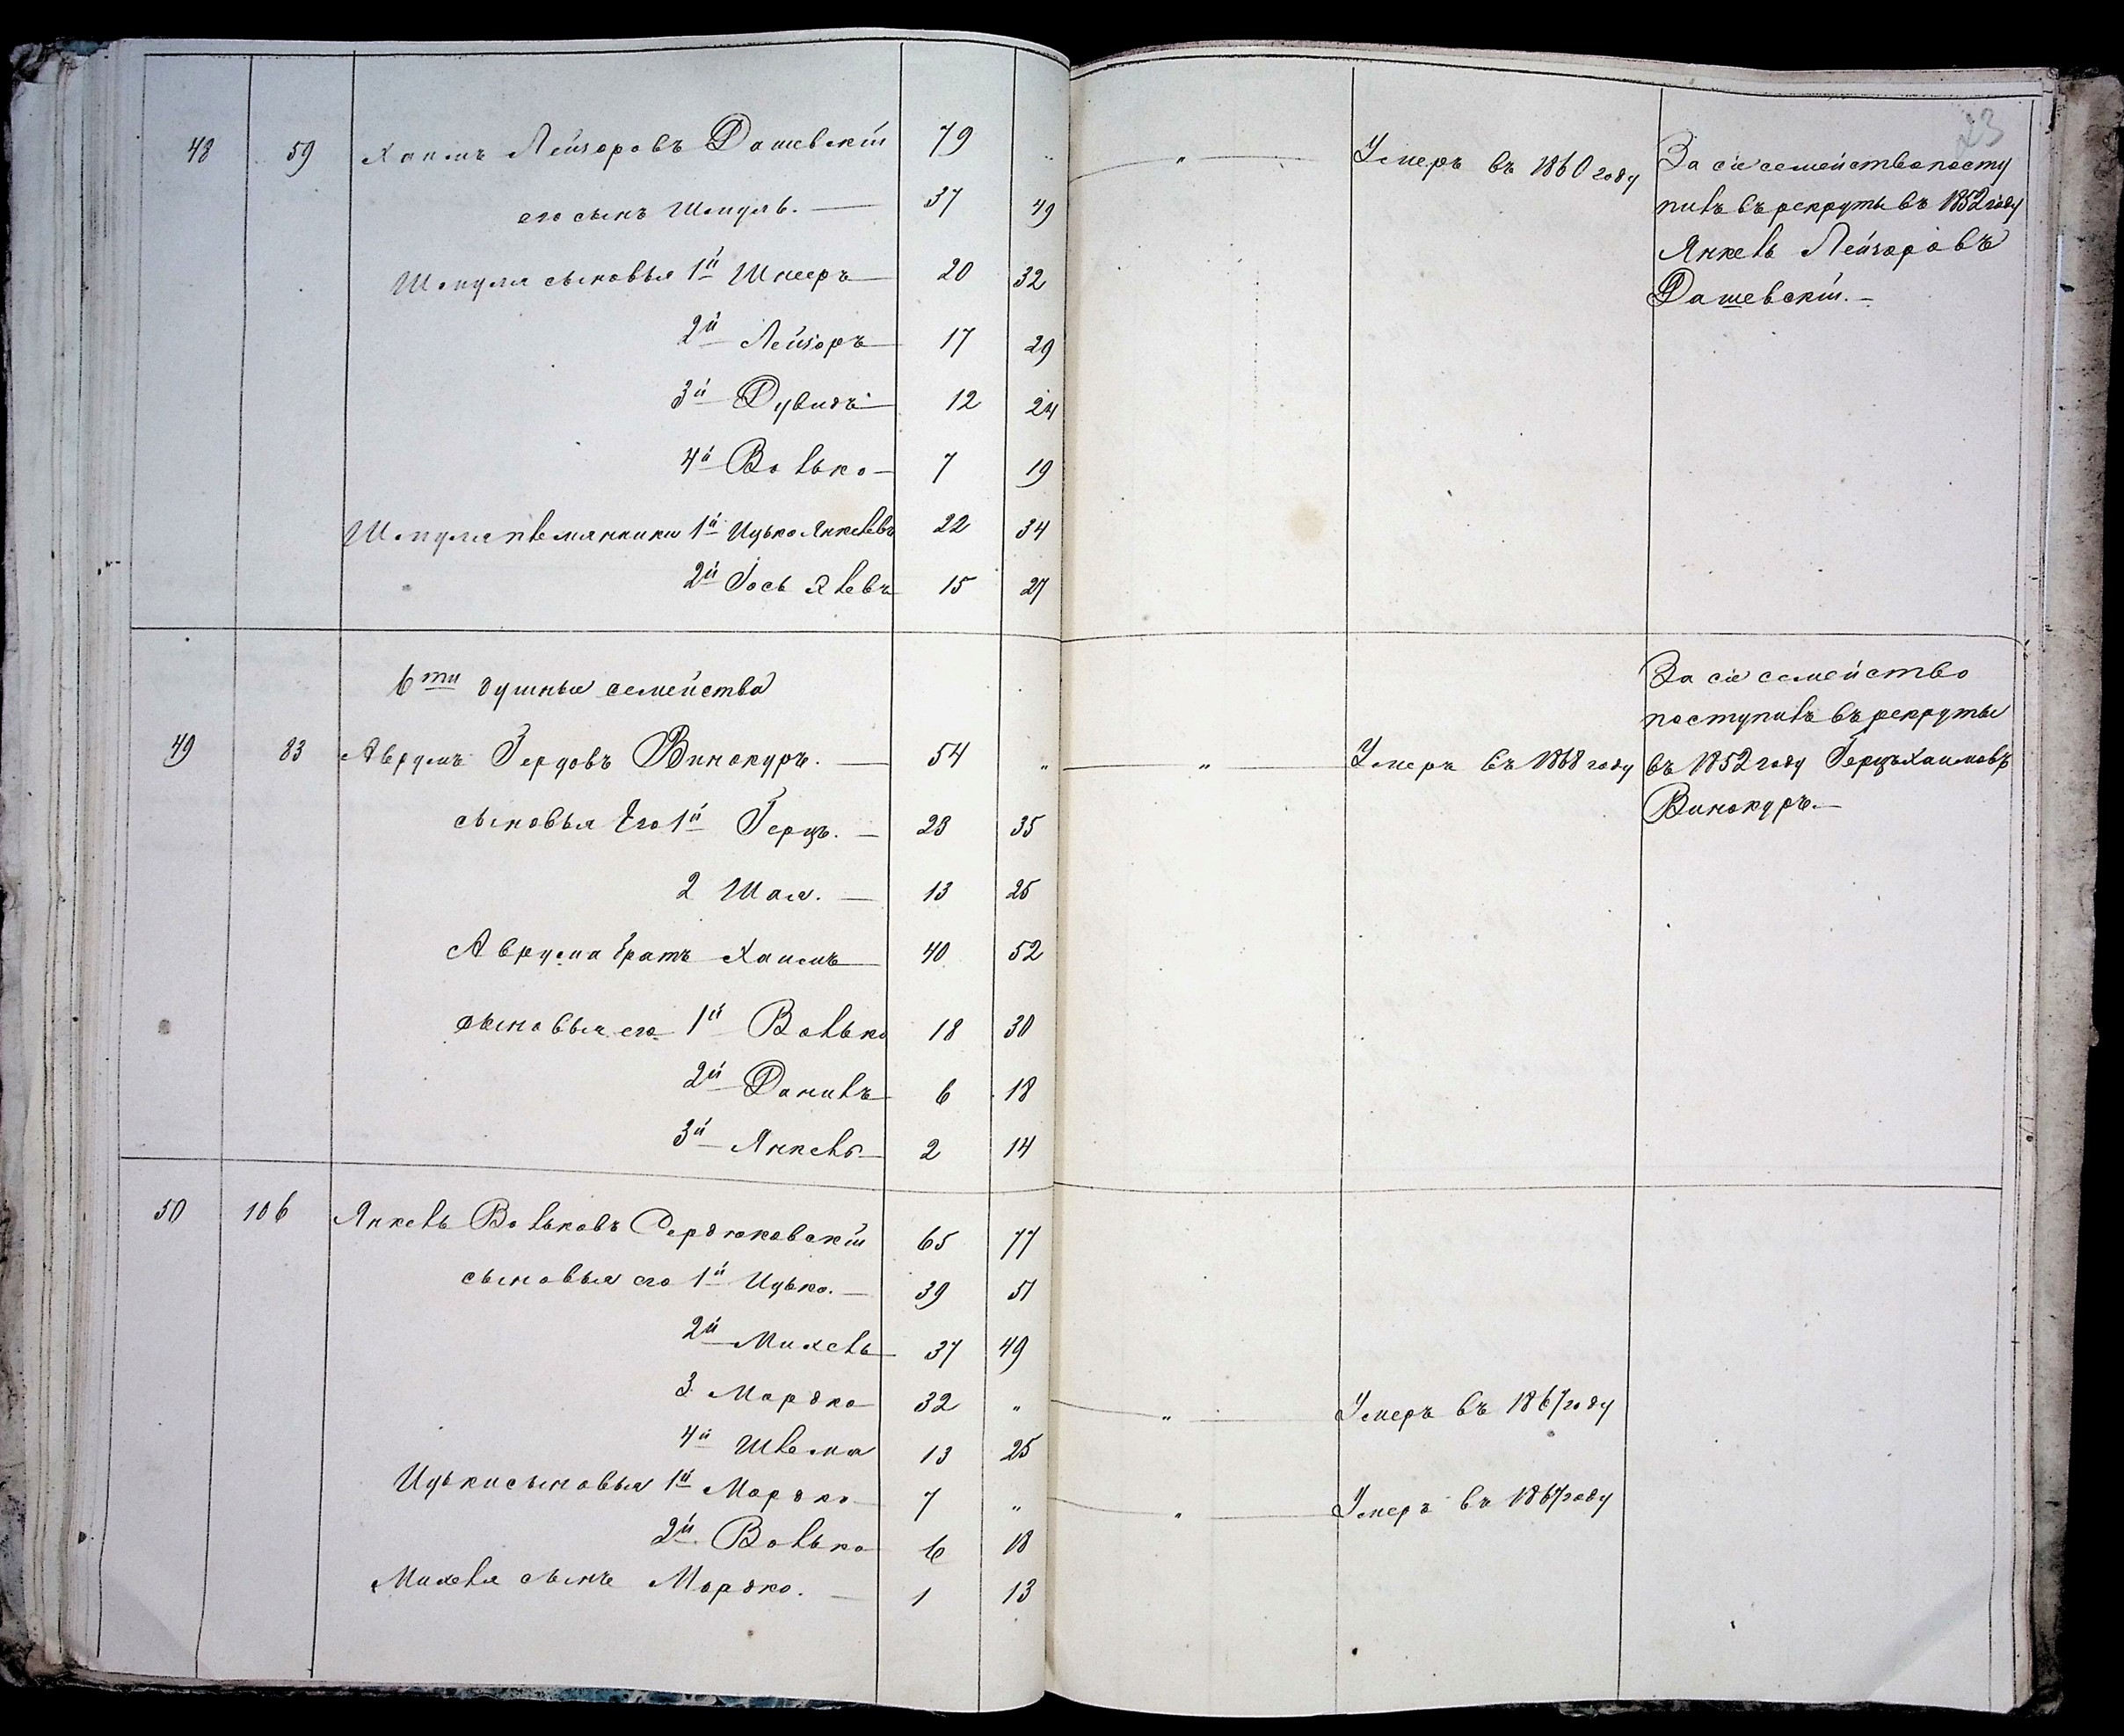 23
48 59 Хаимъ Лейзоровъ Дашевскій 79 „ — „ — Умеръ въ 1860 году
его сынъ Шмуль. — 37 49
Шмуля сыновья 1й Шнееръ — 20 32
2й Лейзоръ — 17 29
3й Дувидъ — 12 24
4й Волько — 7 19
Шмуля племянники 1й Ицько Янкелевъ 22 34
2й Іось 15 27
За сіе семейство посту
пилъ въ рекруты въ 1852 году
Янкель Лейзоровъ
Дашевскій. —
6ти душные семейства
49 83 Аврумъ Герцовъ Винокуръ. — 54 „ — „ — Умеръ въ 1868 году
сыновья Его 1й Герцъ. — 23 35
2 Шая. — 13 25
Аврума братъ Хаимъ — 40 52
сыновья его 1й Волько 18 30
2й Данилъ — 6 18
3й Янкель — 2 14
За сіе семейство
поступилъ въ рекруты
въ 1852 году Герцъ Хаимовъ
Винокуръ. —
50 106 Янкель Вольковъ Сердюковскій 65 77
сыновья его 1й Ицько. — 39 51
2й Михель — 37 49
3 Мордко — 32 „ — „ — Умеръ въ 1867 году
4й Шлема 13 25
Ицьки сыновья 1й Мордко — 7 „ — „ — Умеръ въ 1867 году
2й Волько 6 18
Михеля сынъ Мордко. — 1 13